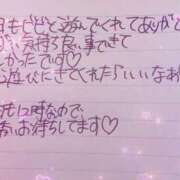 日もじどと遊んでくれてありがと
気持ち良い事できて
かったです♡
遊びにきてくれたらいいなぁ
も12時なので、
お待ちしてます♡